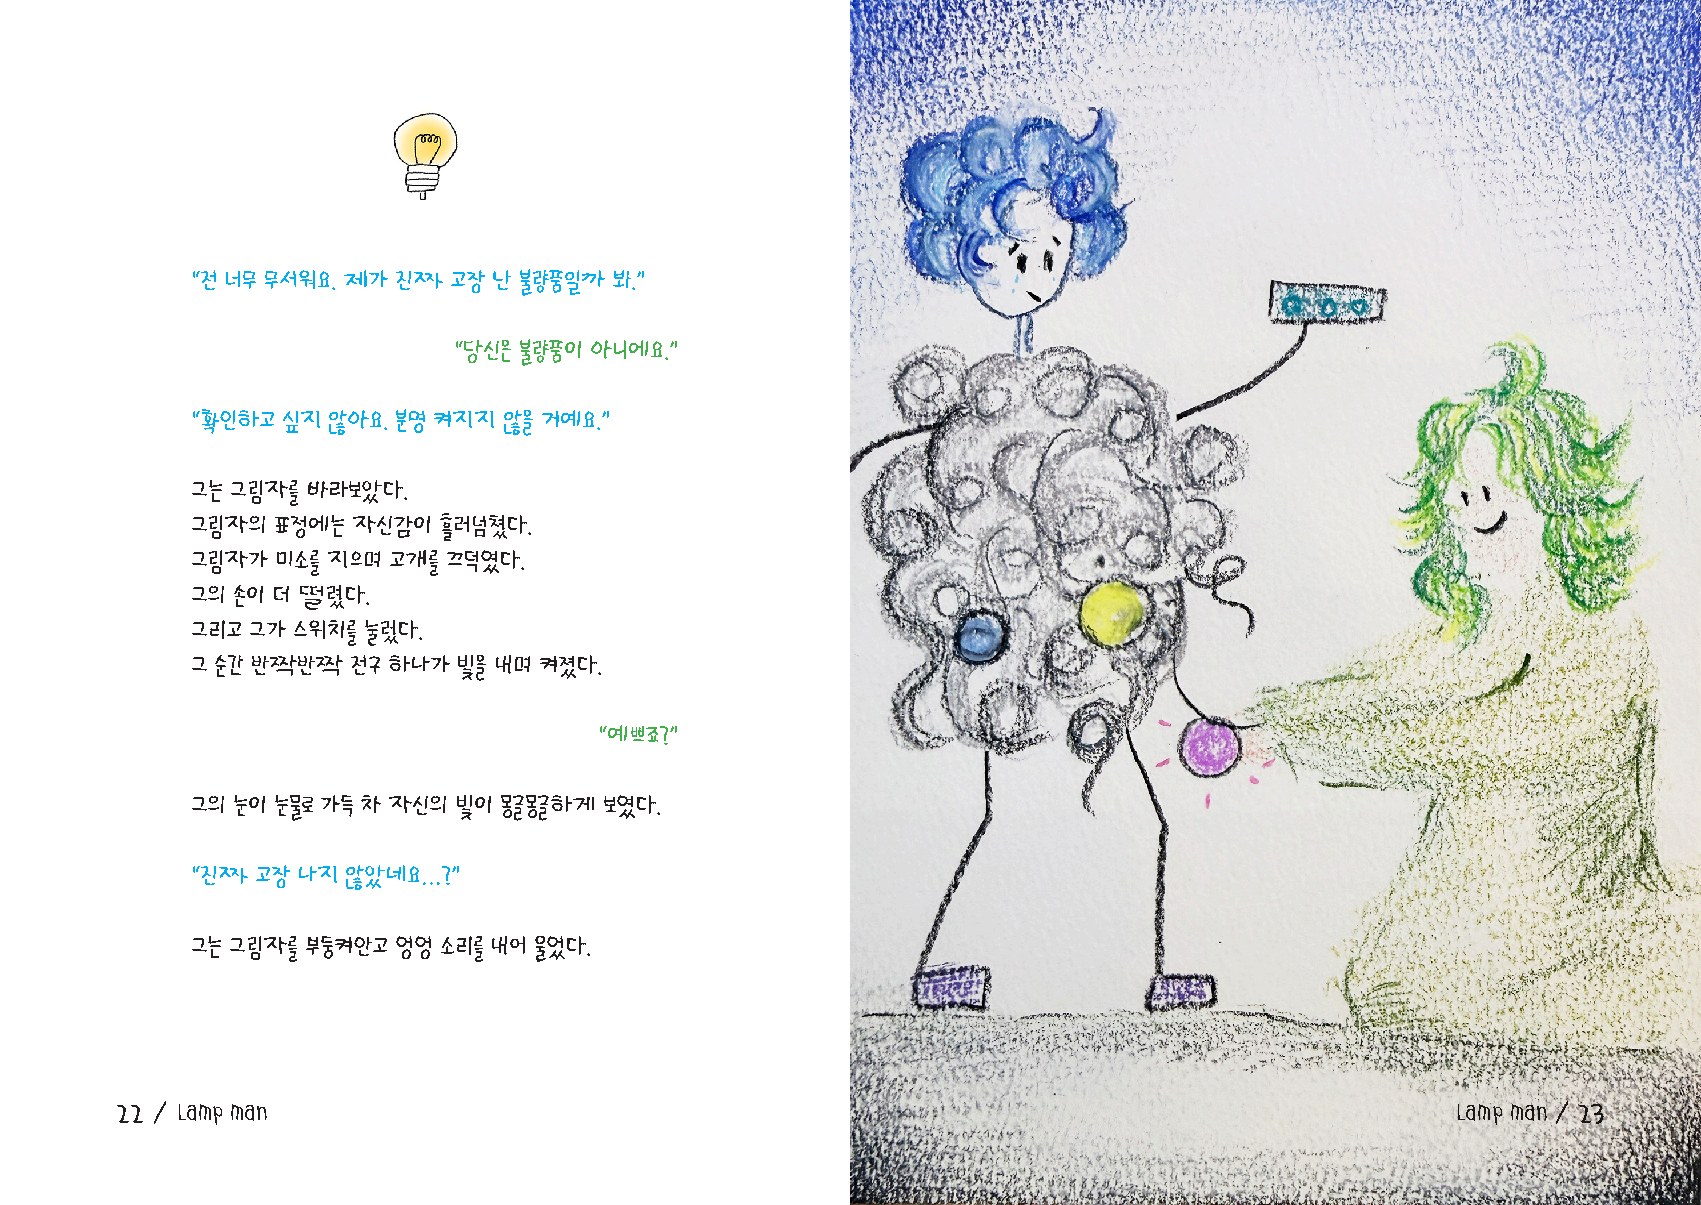 “전 너무 무서워요. 제가 진짜 고장 난 불량품일까 봐.”
“당신은 불량품이 아니에요.”
“확인하고 싶지 않아요. 분명 켜지지 않을 거예요.”
그는 그림자를 바라보았다.
그림자의 표정에는 자신감이 흘러넘쳤다.
그림자가 미소를 지으며 고개를 끄덕였다.
그의 손이 더 떨렸다.
그리고 그가 스위치를 눌렀다.
그 순간 반짝반짝 전구 하나가 빛을 내며 켜졌다.
“예쁘죠?”
그의 눈이 눈물로 가득 차 자신의 빛이 몽글몽글하게 보였다.
“진짜 고장 나지 않았네요...?”
그는 그림자를 부둥켜안고 엉엉 소리를 내어 울었다.
22 / Lamp man
Lamp man / 23